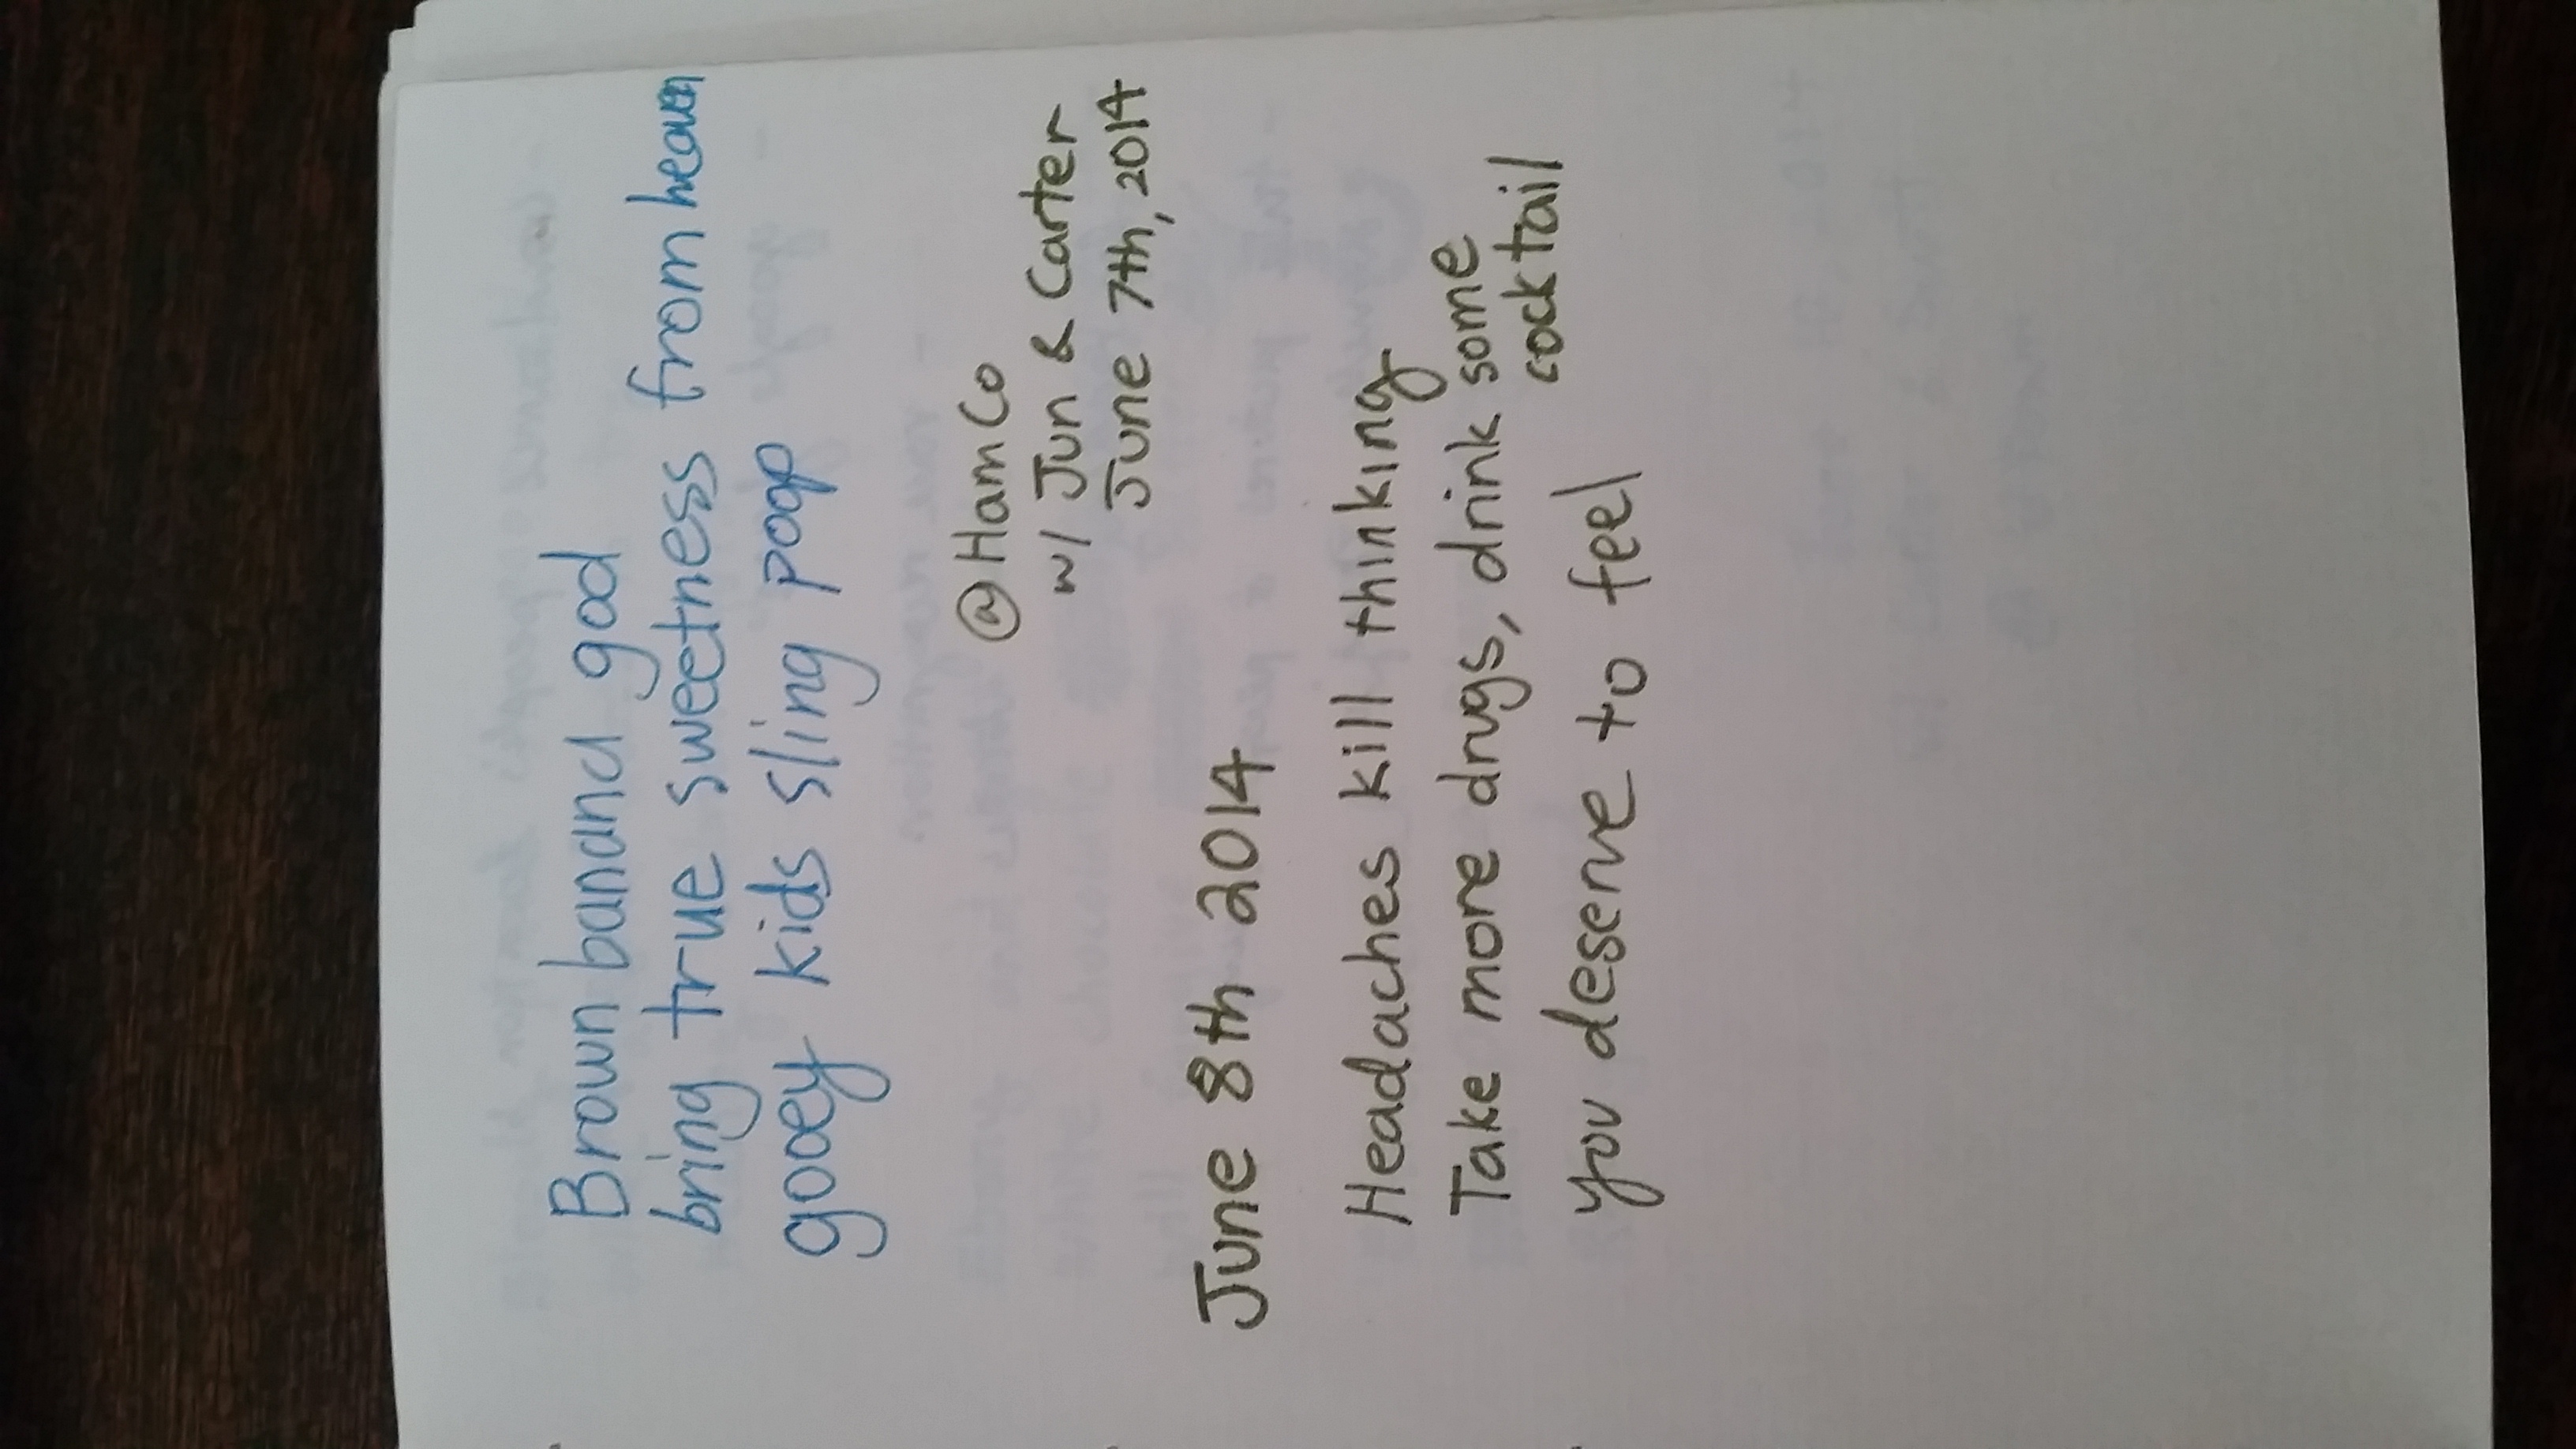 Brown banana god
bring true sweetness from heaven
gooey kids sling poop
@HamCo
w/ Jun & Carter
June 7th, 2014
June 8th 2014
Headaches kill thinking
Take more drugs, drink some
cocktail
you deserve to feel